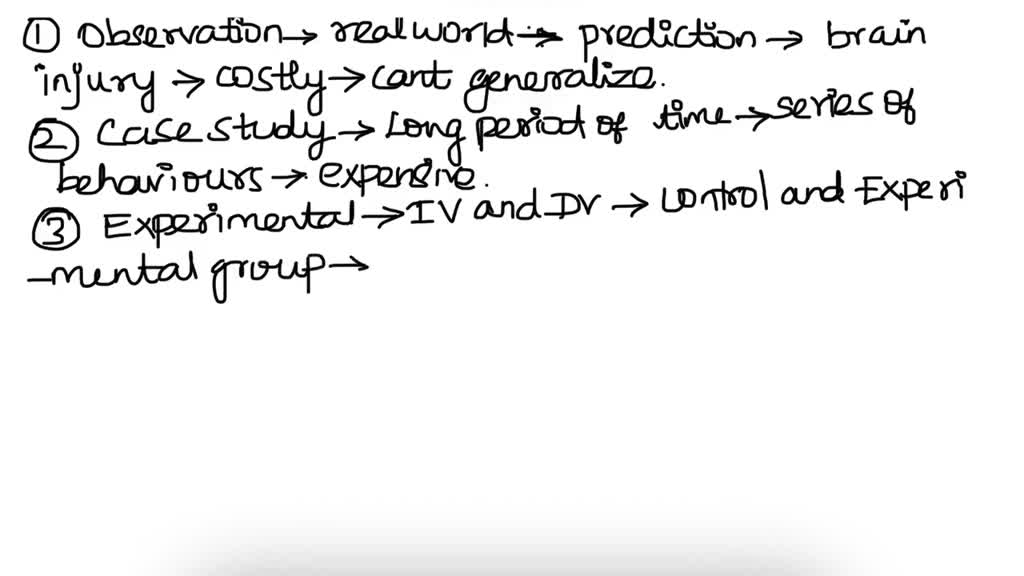 ① Observation → real world → prediction → brain
injury → costly → cant generalize.
② Case study → Long period of time → series of
behaviours → expensive.
③ Experimental → IV and DV → control and Experi
-mental group →